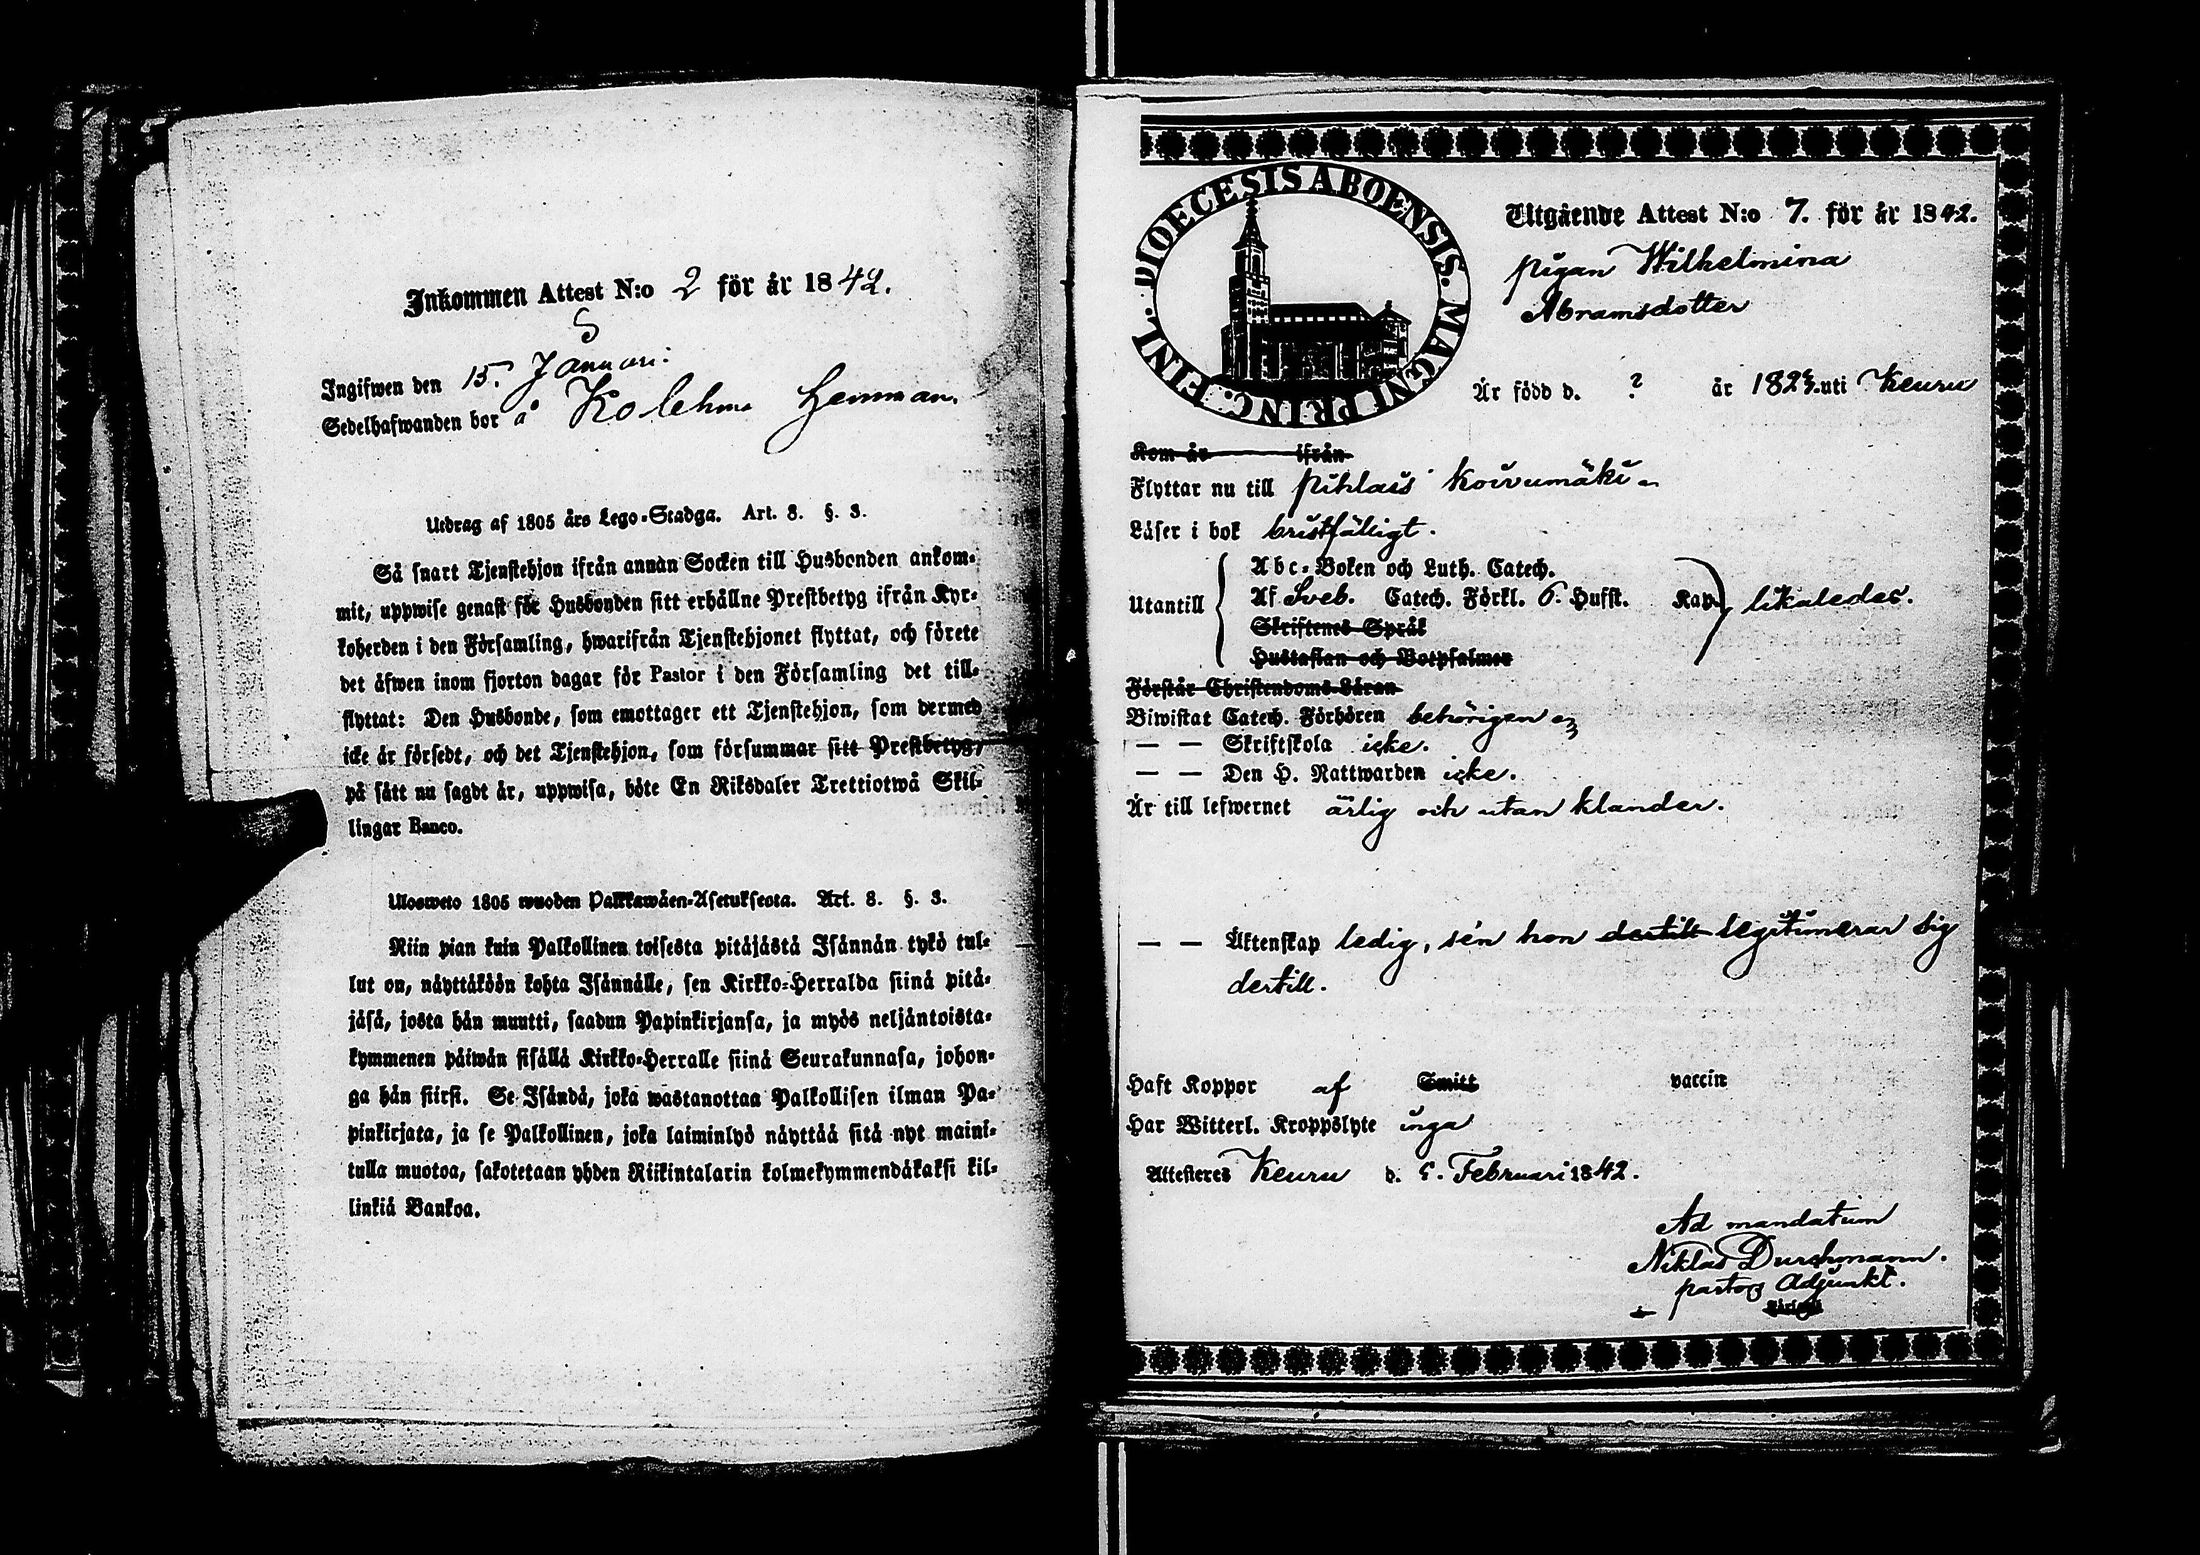 Inkommen Attest N:o 2 för år 1842.
Ingifwen den 15. Januari.
Sedelhafwanden bor å Kolehma Hemman.
Utdrag af 1805 års Lego-Stadga. Art. 8. §. 3.
Så snart Tjenstehjon ifrån annan Socken till Husbonden ankom-
mit, uppwise genast för Husbonden sitt erhållne Prestbetyg ifrån Kyr-
koherden i den Församling, hwarifrån Tjenstehjonet flyttat, och förete
det äfwen inom fjorton dagar för Pastor i den Församling det till-
flyttat: Den Husbonde, som emottager ett Tjenstehjon, som dermed
icke är försedt, och det Tjenstehjon, som försummar sitt Prestbetyg,
på sätt nu sagdt är, uppwisa, böte En Riksdaler Trettiotwå Skil-
lingar Banco.
Ulosweto 1805 wuoden Palkkawäen-Asetuksesta. Art. 8. §. 3.
Niin pian kuin Palkollinen toisesta pitäjästä Isännän tykö tul-
lut on, näyttäköön kohta Isännälle, sen Kirkko-Herralda siinä pitä-
jäsä, josta hän muutti, saadun Papinkirjansa, ja myös neljäntoista-
kymmenen päiwän sisällä Kirkko-Herralle siinä Seurakunnasa, johon-
ga hän siirsi. Se Isändä, joka wastanottaa Palkollisen ilman Pa-
pinkirjata, ja se Palkollinen, joka laiminlyö näyttää sitä nyt maini-
tulla muotoa, sakotetaan yhden Riikintalarin kolmekymmendäkaksi kil-
linkiä Bankoa.
DIOECESIS ABOENSIS. MAGNI PRINC. FINL.
Utgående Attest N:o 7. för år 1842.
pigan Wilhelmina
Abramsdotter
Är född d. ? år uti Keuru
Kom år ifrån
Flyttar nu till Pihlais Koivumäki
Läser i bok bristfälligt.
Abc-Boken och Luth. Catech.
Utantill Af Sveb. Catech. Förkl. 6. Hufst. Kap. likaledes.
Skriftenes Språk
Hustaflan och Botpsalmer
Förstår Christendoms-Läran
Biwistat Catech. Förhören behörigen
— — Skriftskola icke.
— — Den H. Nattwarden icke.
Är till lefwernet ärlig och utan klander.
— — Äktenskap ledig, sén hon dertill legitimerar sig
dertill.
Haft Koppor af Smitt vaccin
Har Witterl. Kroppslyte inga
Attesteres Keuru d. Februari 1842.
Ad mandatum
Niklas Durchmann.
pastors Adjunkt.